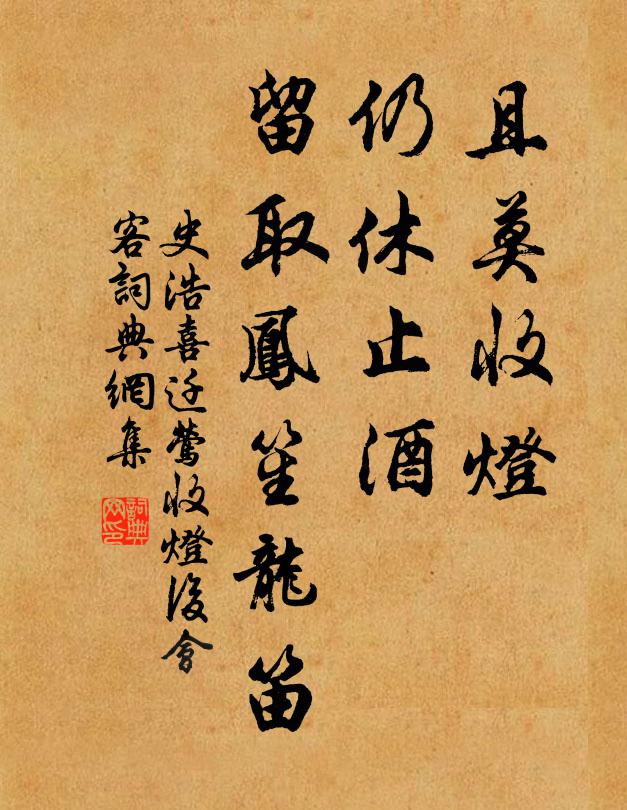 且莫收燈
仍休止酒
留取鳳笙龍笛
史浩喜迁鶯收燈後會
客詞典網集
詞典
网印